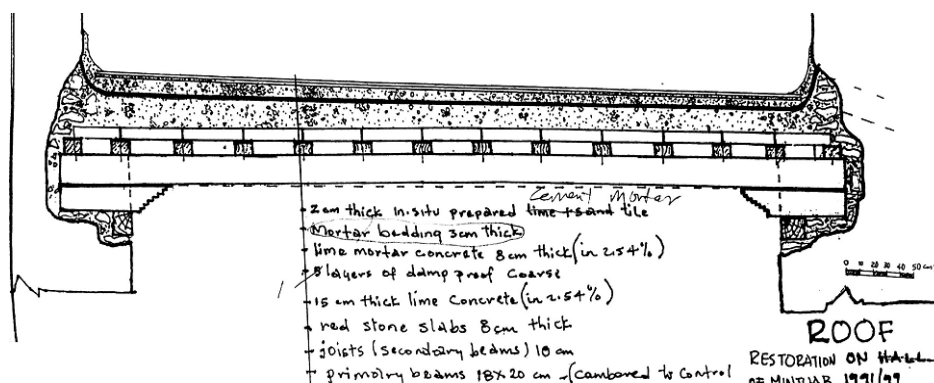 Cement Mortar
2cm thick in.situ prepared lime + sand tile
Mortar bedding 3cm thick
lime mortar concrete 8cm thick (in 2.54%)
layers of damp proof Coarse
15 cm thick lime Concrete (in 2.54%)
red stone slabs 8cm thick
joists (secondary beams) 10 cm
primary beams 18x20 cm (cambered to Control
0 10 20 30 40 50 cm
ROOF
RESTORATION ON HALL
OF MINTHAR 1991/99